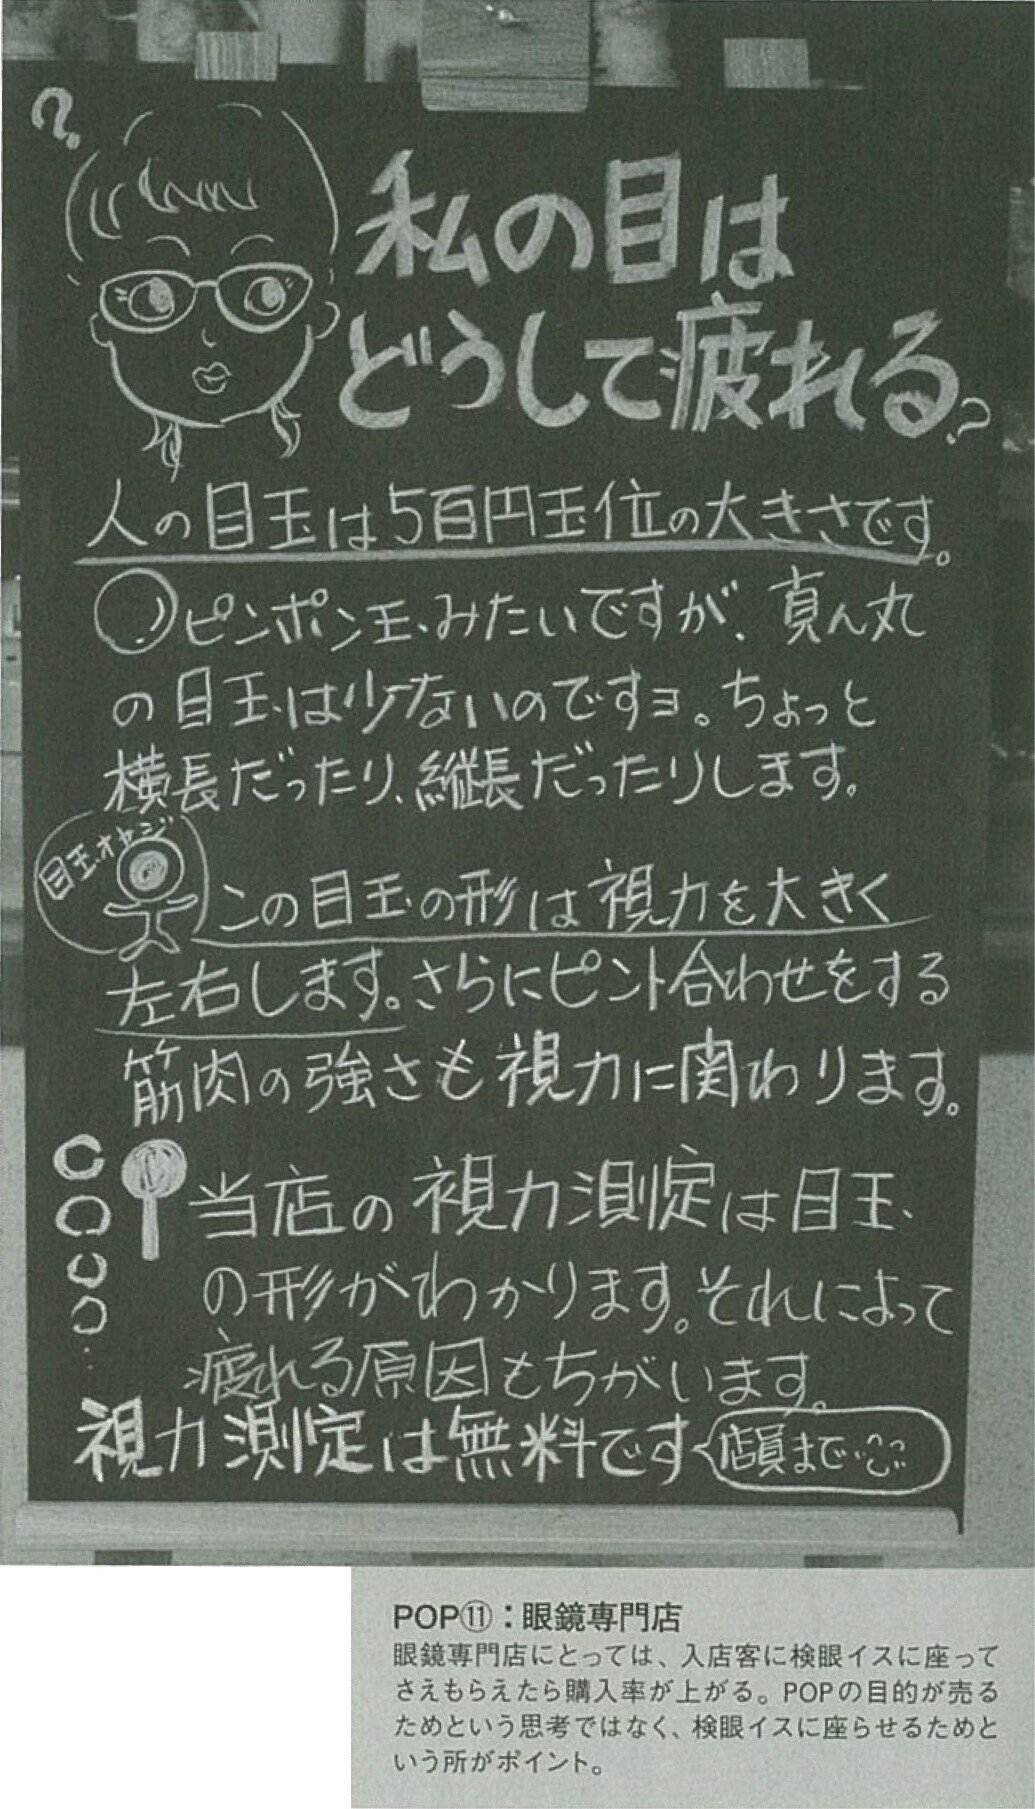 ?
私の目は
どうして疲れる?
人の目玉は5百円玉位の大きさです。
ピンポン玉みたいですが、真ん丸
の目玉は少ないのですョ。ちょっと
横長だったり、縦長だったりします。
目玉オヤジ
この目玉の形は視力を大きく
左右します。さらにピント合わせをする
筋肉の強さも視力に関わります。
当店の視力測定は目玉
の形がわかります。それによって
疲れる原因もちがいます。
視力測定は無料です
店員まで
POP⑪：眼鏡専門店
眼鏡専門店にとっては、入店客に検眼イスに座って
さえもらえたら購入率が上がる。POPの目的が売る
ためという思考ではなく、検眼イスに座らせるためと
いう所がポイント。